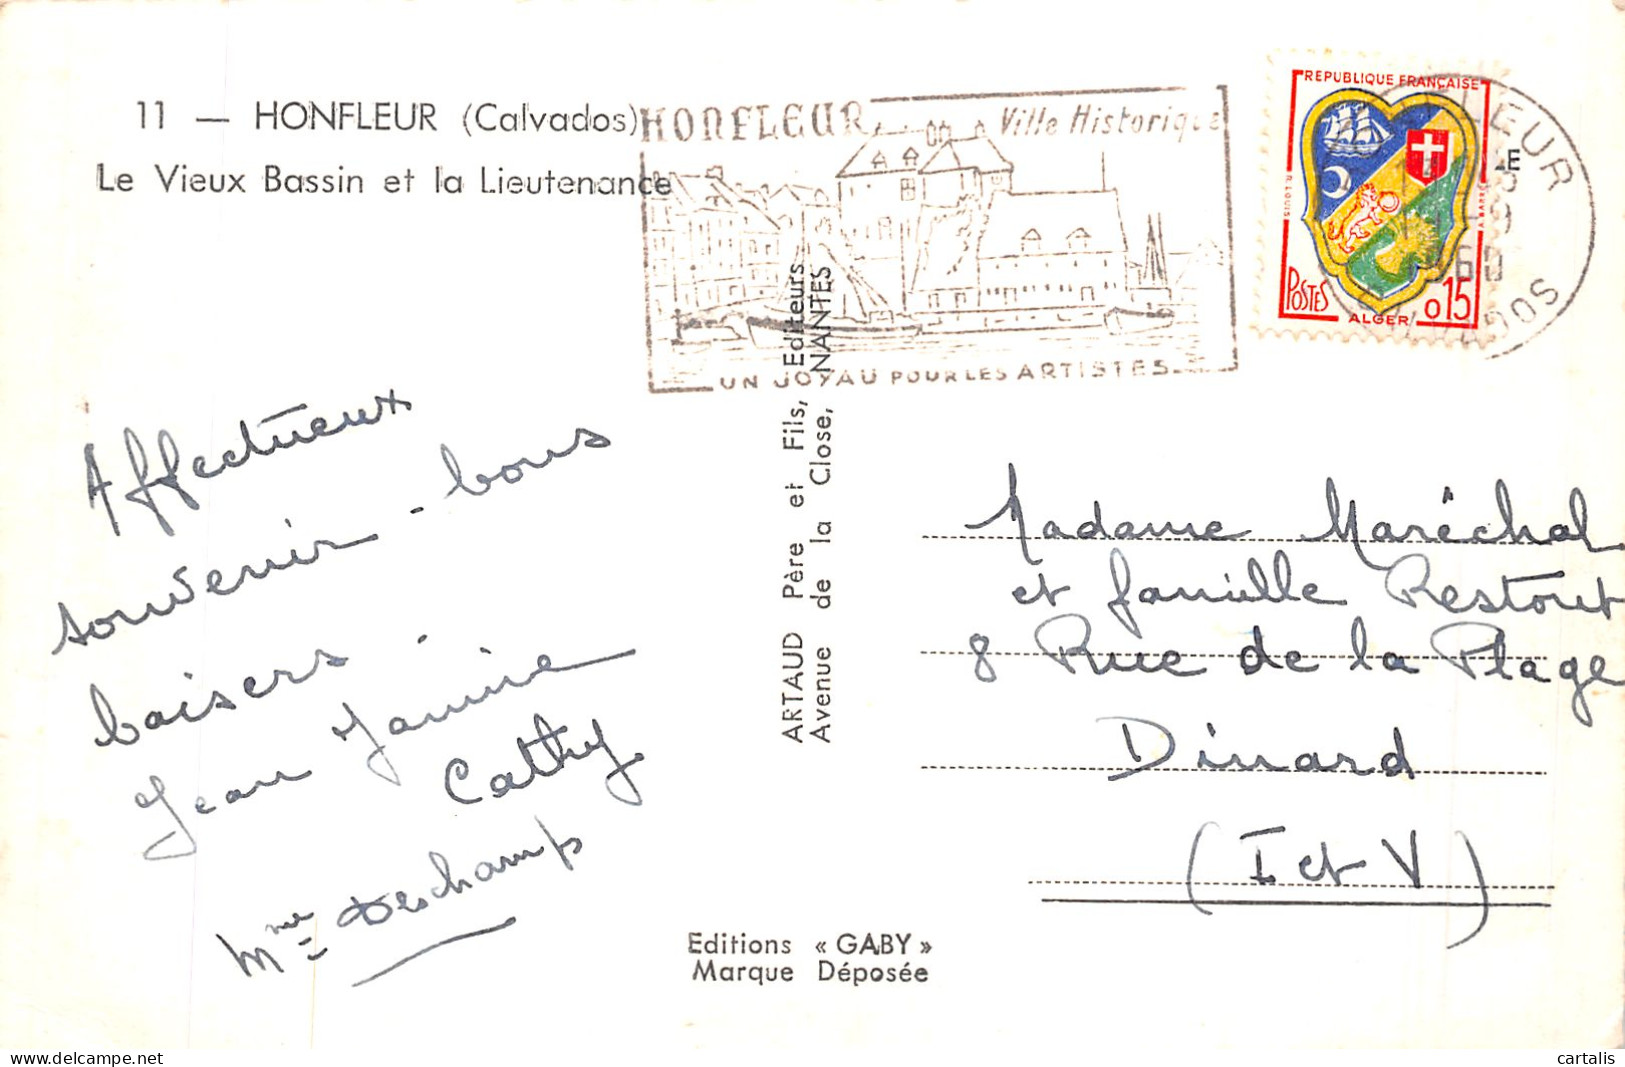 11 — HONFLEUR (Calvados)
Le Vieux Bassin et la Lieutenance
HONFLEUR Ville Historique
UN JOYAU POUR LES ARTISTES
REPUBLIQUE FRANÇAISE
POSTES
0,15
ALGER
R. LOUIS
FLEUR
1960
CALVADOS
Affectueux
souvenir - bons
baisers -
Jean Janine
Cathy
Mme Deschamps
ARTAUD Père et Fils, Editeurs
Avenue de la Close, NANTES
Madame Maréchal
et famille Restout
8 Rue de la Plage
Dinard
(I et V)
Editions « GABY »
Marque Déposée
delcampe.net
cartalis